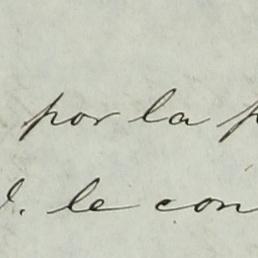 por la
le con